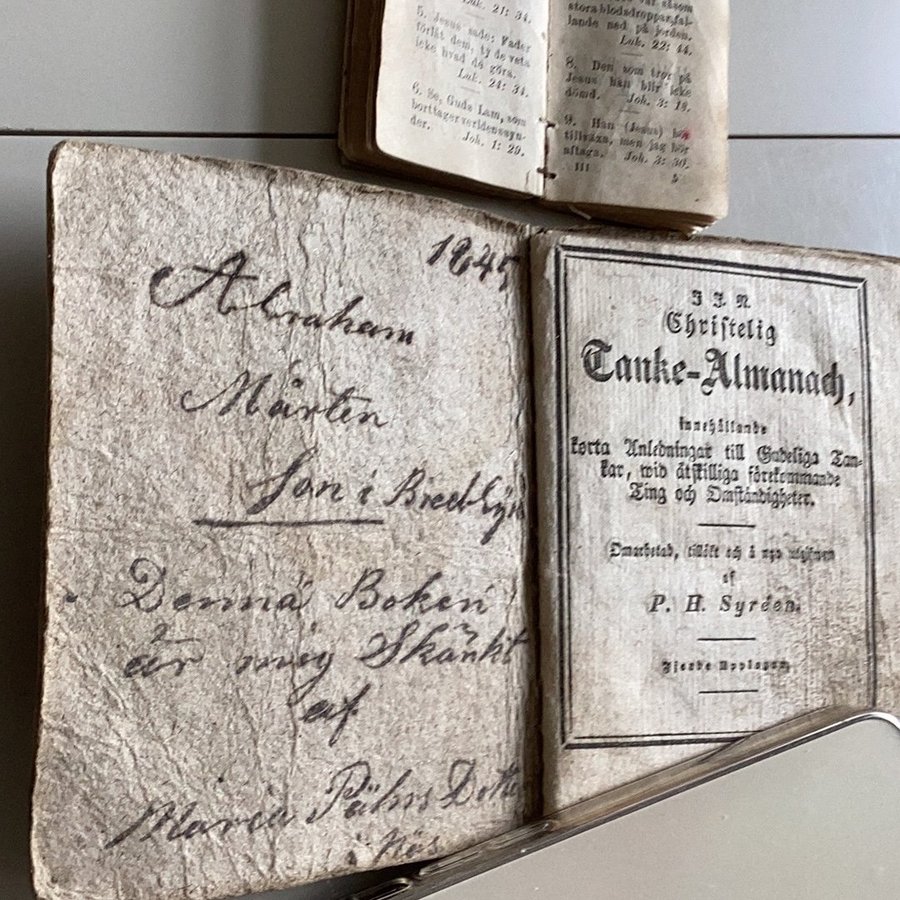 Luk. 21: 34.
5. Jesus sade: Fader
förlåt dem, ty de veta
icke hvad de göra.
Luk. 24: 34.
6. Se, Guds Lam, som
borttager verldenes syn-
der.
Joh. 1: 29.
såsom
stora blodsdroppar, fal-
lande ned på jorden.
Luk. 22: 44.
8. Den som tror på
Jesus han blir icke
dömd. Joh. 3: 18.
9. Han (Jesus) bör
tillväxa, men jag bör
aftaga. Joh. 3: 30.
III 5
1845
Abraham
Mårten
Son i
Denna Boken
är mig Skänkt
af
Maria Dotte
i Näs
I J. N.
Christelig
Tanke-Almanach,
innehållande
korta Anledningar till Gudeliga Tan-
kar, wid åtskilliga förekommande
Ting och Omständigheter.
Omarbetad, tillökt och å nyo utgifwen
af
P. H. Syréen.
Fjerde Upplagan.